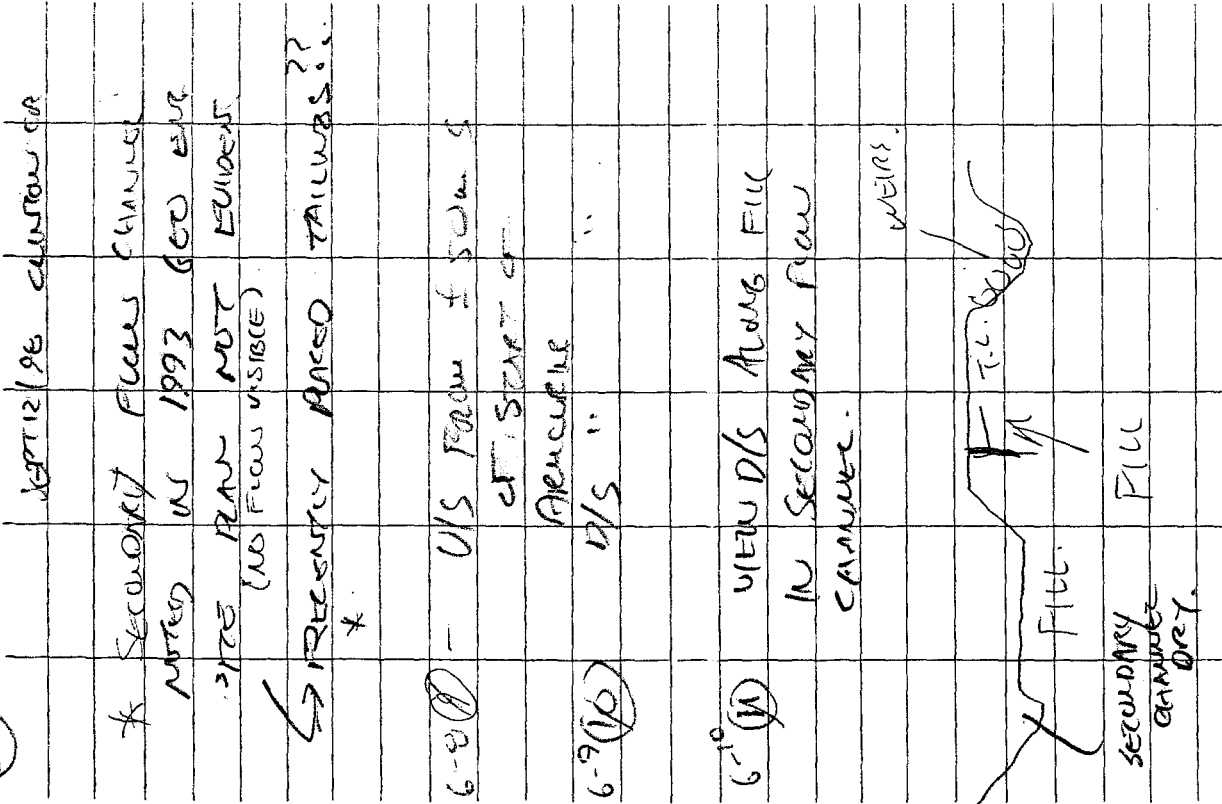 SEPT 12/96 CLINTON CR
* SECONDARY FLOW CHANNEL
NOTED IN 1993 GEO ENG
SITE PLAN NOT EVIDENT
(NO FLOW VISIBLE)
↳ RECENTLY PLACED TAILINGS??
*
6-8 — U/S FROM ± 50m S
OF START OF
6-9 (10) D/S " "
6-10 (11) VIEW D/S ALONG FILL
IN SECONDARY FLOW
CHANNEL.
WEIRS.
T.L.
FILL.
FILL
SECONDARY
CHANNEL
DRY.